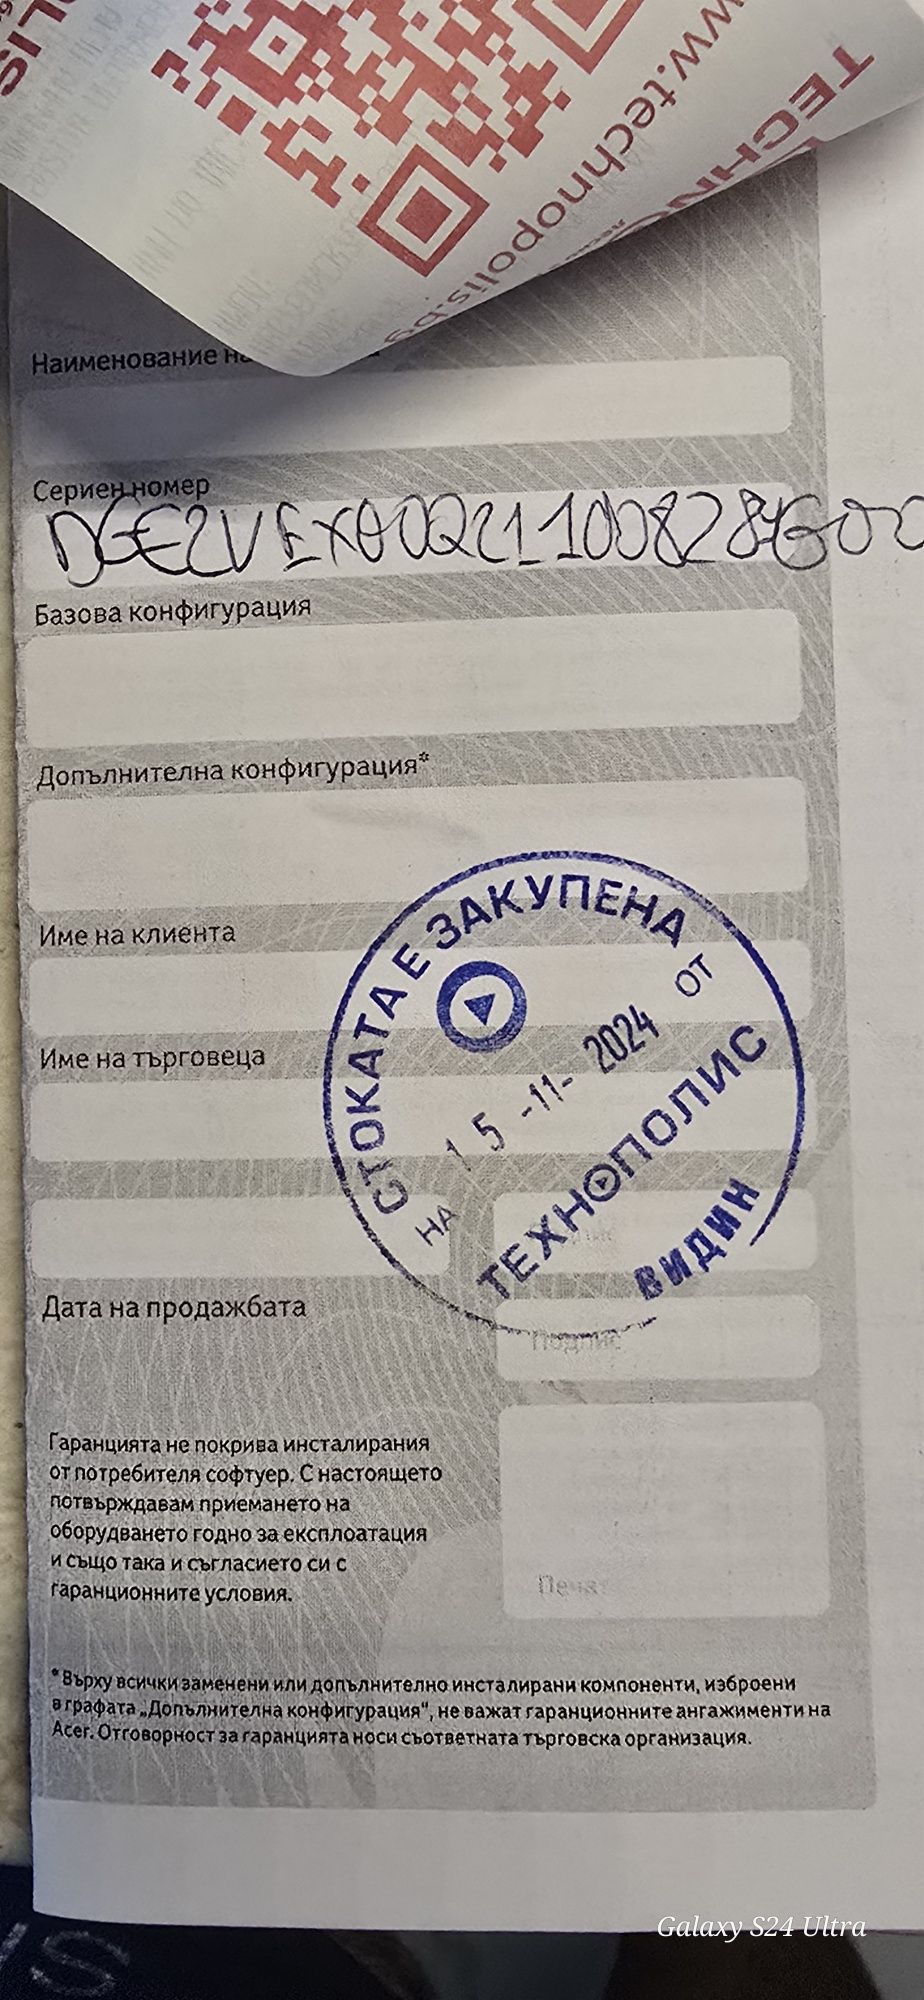 www.technopolis.bg
Наименование на
Сериен номер
Базова конфигурация
Допълнителна конфигурация*
Име на клиента
Име на търговеца
СТОКАТА Е ЗАКУПЕНА
НА 15 -11- 2024 ОТ
ТЕХНОПОЛИС
ВИДИН
Дата на продажбата
Подпис
Гаранцията не покрива инсталирания
от потребителя софтуер. С настоящето
потвърждавам приемането на
оборудването годно за експлоатация
и също така и съгласието си с
гаранционните условия.
Печат
* Върху всички заменени или допълнително инсталирани компоненти, изброени
в графата „Допълнителна конфигурация“, не важат гаранционните ангажименти на
Acer. Отговорност за гаранцията носи съответната търговска организация.
Galaxy S24 Ultra